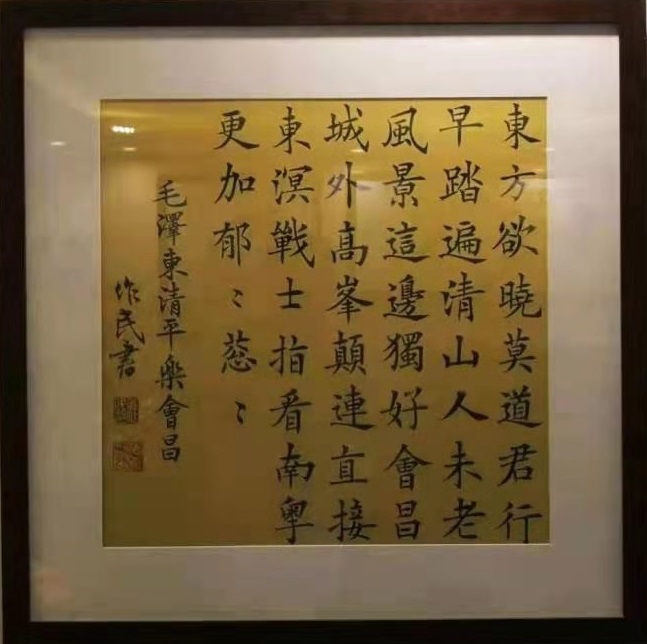 東方欲曉莫道君行
早踏遍清山人未老
風景這邊獨好會昌
城外髙峯顛連直接
東溟戰士指看南粤
更加郁〻蔥〻
毛澤東清平樂會昌
作民書